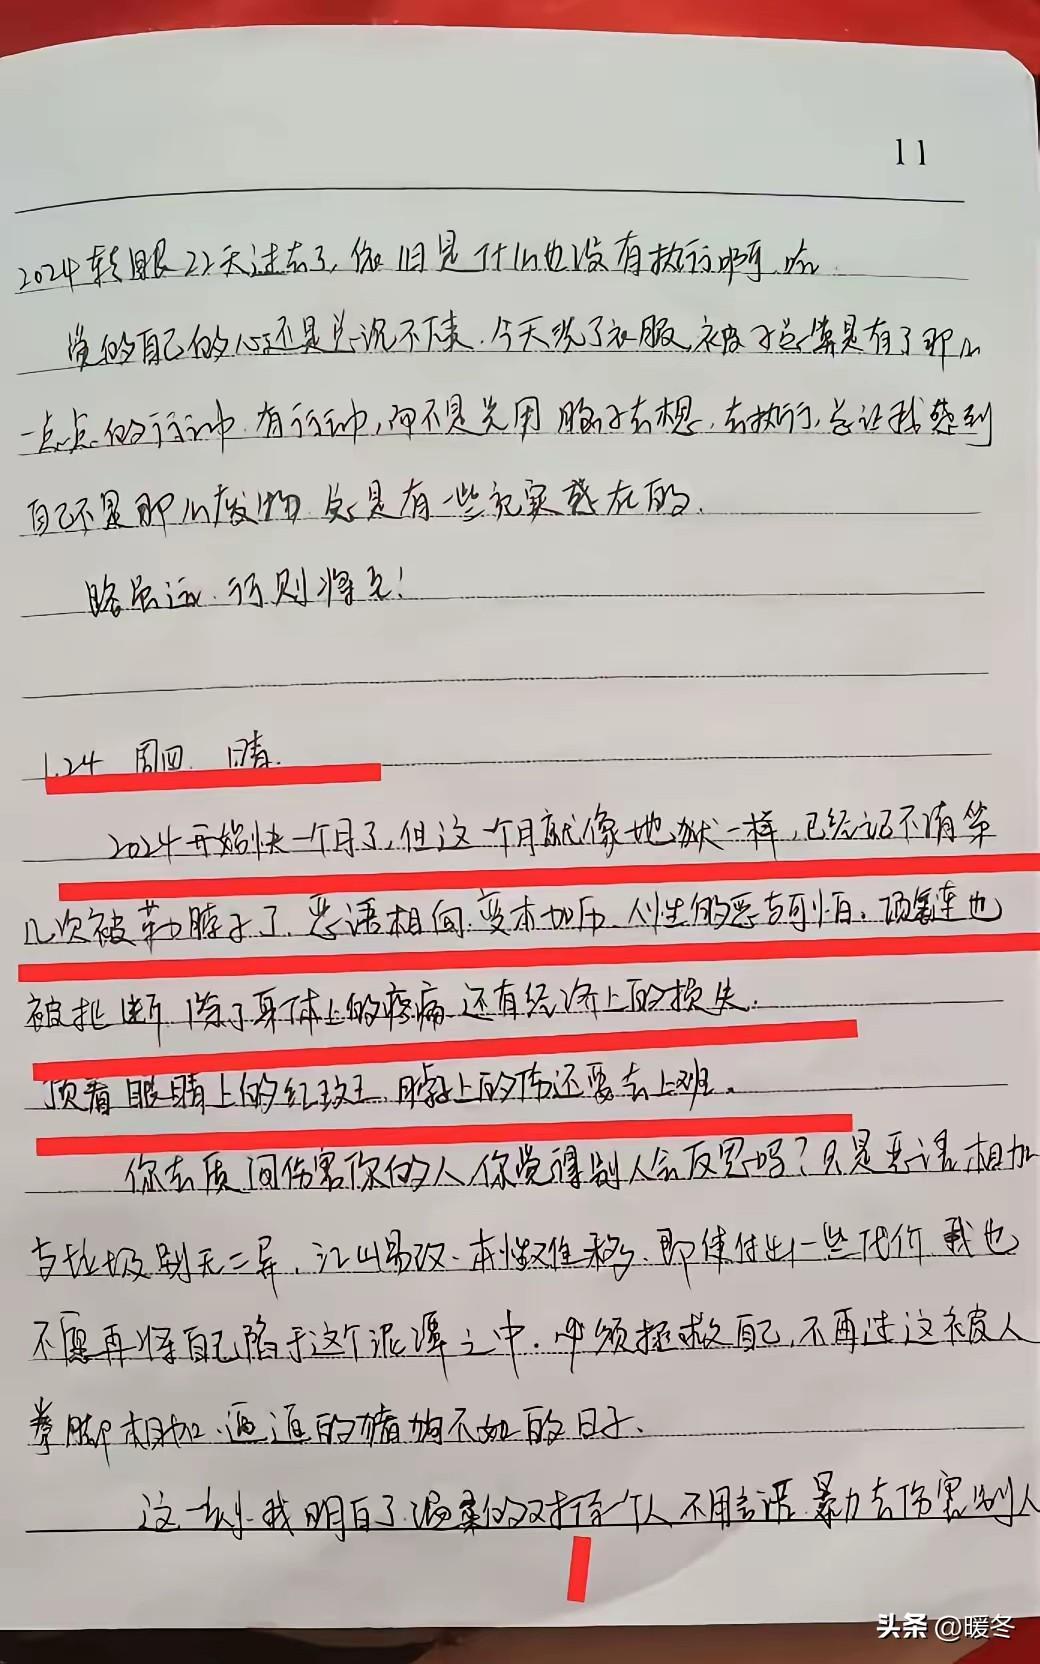 11
2024转眼22天过去了,依旧是什么也没有执行啊,哈
觉的自己的心还是总沉不下来.今天洗了衣服,被子总算是有了那么
一点点的行动,有行动,而不是光用脑子去想,去执行,总让我感到
自己不是那么废物,总是有一些充实感在的.
路虽远,行则将至!
1.24 周四 晴.
2024开始快一个月了,但这一个月就像地狱一样,已经记不清第
几次被勒脖子了,恶语相向,变本加厉,人性的恶与可怕,项链也
被扯断,除了身体上的疼痛,还有经济上的损失.
顶着眼睛上的红斑,脖子上的伤还要去上班.
你去质问伤害你的人,你觉得别人会反思吗?只是恶语相加
与垃圾别无二异,江山易改,本性难移,即使付出一些代价我也
不愿再将自己陷于这个泥潭之中.必须拯救自己,不再过这被人
拳脚相加,逼逼的猪狗不如的日子.
这一刻我明白了,温柔的对待一个人不用言语,暴力去伤害别人
头条 @暖冬